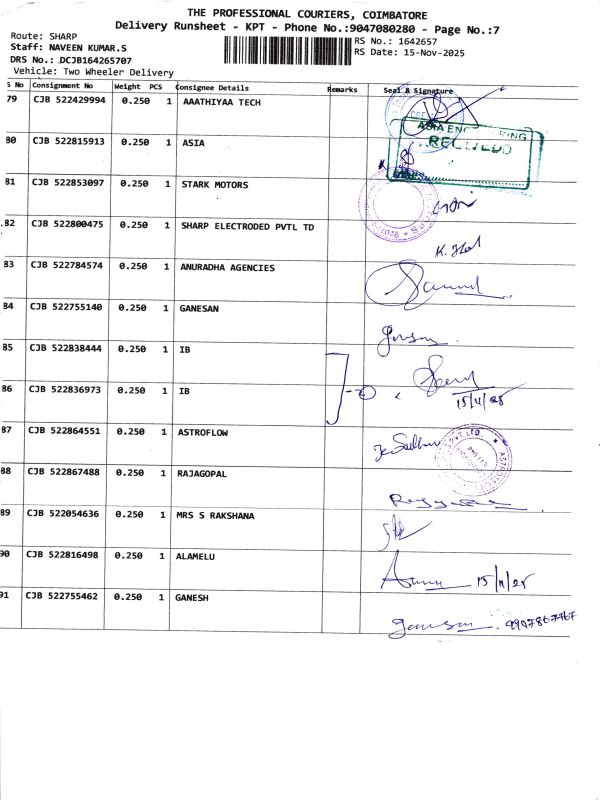 THE PROFESSIONAL COURIERS, COIMBATORE
Delivery Runsheet - KPT - Phone No.:9047080280 - Page No.:7
Route: SHARP
RS No.: 1642657
Staff: NAVEEN KUMAR.S
RS Date: 15-Nov-2025
DRS No.: DCJB164265707
Vehicle: Two Wheeler Delivery
S No Consignment No Weight PCS Consignee Details Remarks Seal & Signature
79 CJB 522429994 0.250 1 AAATHIYAA TECH
ASIA ENG RING
RECEIVED
80 CJB 522815913 0.250 1 ASIA
81 CJB 522853097 0.250 1 STARK MOTORS
82 CJB 522800475 0.250 1 SHARP ELECTRODED PVTL TD
83 CJB 522784574 0.250 1 ANURADHA AGENCIES
84 CJB 522755140 0.250 1 GANESAN
85 CJB 522838444 0.250 1 IB
86 CJB 522836973 0.250 1 IB
15/11/25
87 CJB 522864551 0.250 1 ASTROFLOW
88 CJB 522867488 0.250 1 RAJAGOPAL
89 CJB 522054636 0.250 1 MRS S RAKSHANA
90 CJB 522816498 0.250 1 ALAMELU
15/11/25
91 CJB 522755462 0.250 1 GANESH